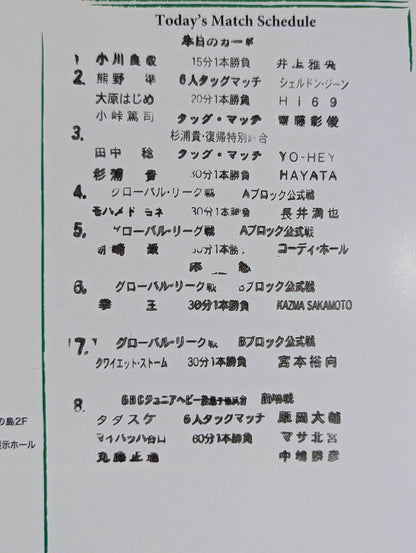 Today's Match Schedule
本日のカード
1 小川良成 15分1本勝負 井上雅央
2. 熊野 準 6人タッグマッチ シェルドン・ジーン
大原はじめ 20分1本勝負 Hi69
小峠篤司 タッグ・マッチ 齋藤彰俊
3. 杉浦貴・復帰特別試合
田中 稔 タッグ・マッチ YO-HEY
杉浦 貴 30分1本勝負 HAYATA
4. グローバル・リーグ戦 Aブロック公式戦
モハメド ヨネ 30分1本勝負 長井満也
5. グローバル・リーグ戦 Aブロック公式戦
潮崎 豪 30分1本勝負 コーディ・ホール
休 憩
6. グローバル・リーグ戦 Bブロック公式戦
拳 王 30分1本勝負 KAZMA SAKAMOTO
7. グローバル・リーグ戦 Bブロック公式戦
クワイエット・ストーム 30分1本勝負 宮本裕向
8. GHCジュニアヘビー級選手権試合 前哨戦
タダスケ 6人タッグマッチ 原田大輔
マイバッハ谷口 60分1本勝負 マサ北宮
丸藤正道 中嶋勝彦
の島2F
展示ホール